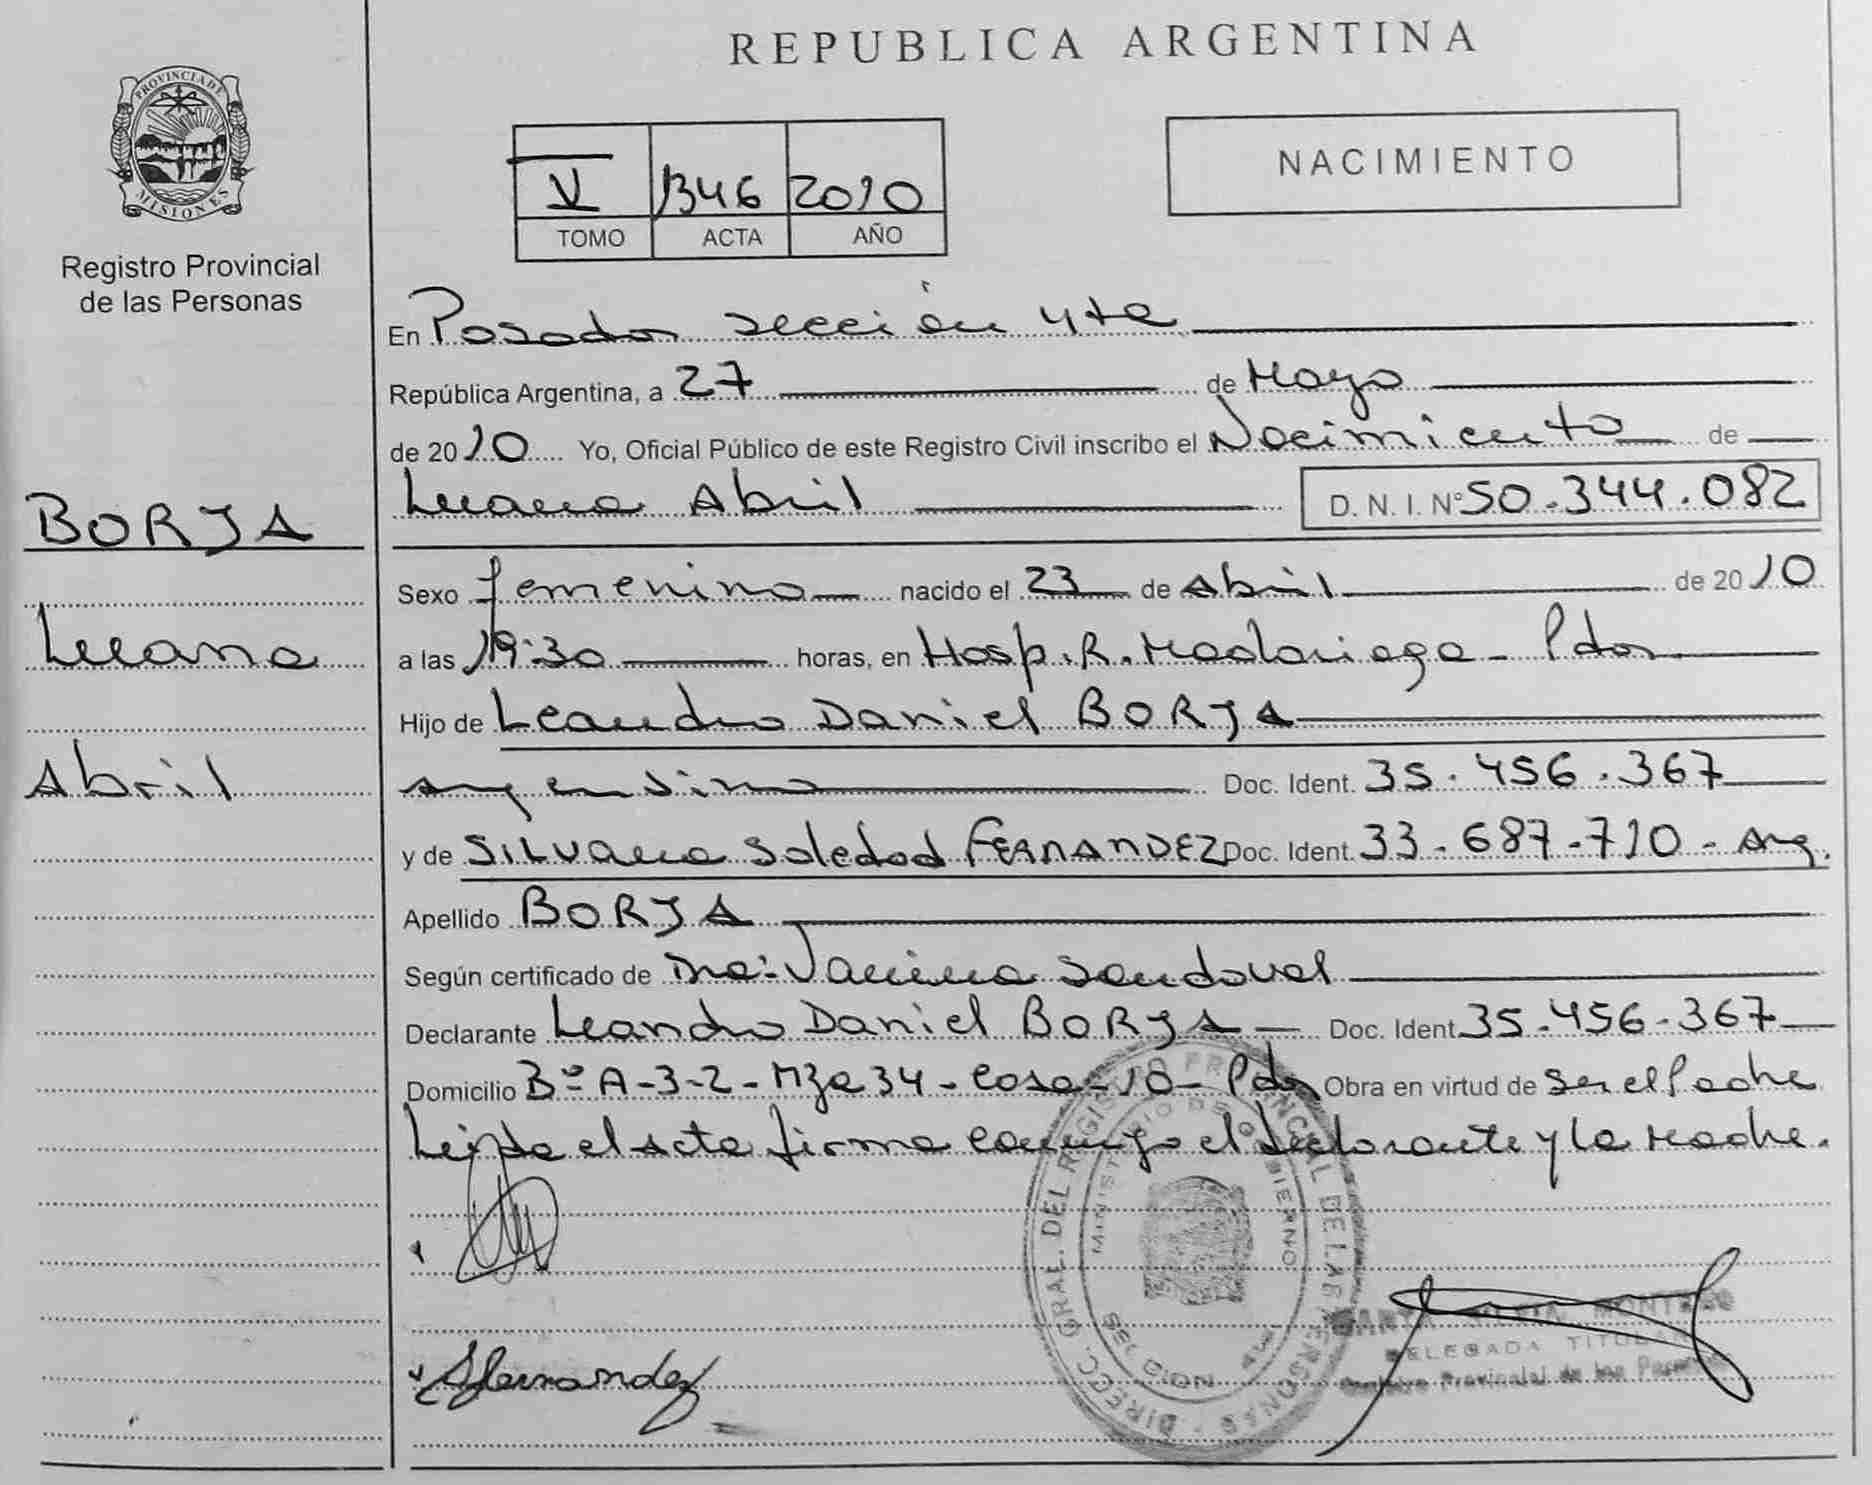 REPUBLICA ARGENTINA
PROVINCIA DE
MISIONES
Registro Provincial
de las Personas
NACIMIENTO
V 1346 2010
TOMO ACTA AÑO
En Posadas sección 4ta
República Argentina, a 27 de Mayo
de 2010 Yo, Oficial Público de este Registro Civil inscribo el Nacimiento de
Luana Abril D. N. I. Nº 50.344.082
BORJA
Luana
Abril
Sexo femenino nacido el 23 de Abril de 2010
a las 19:30 horas, en Hosp. R. Madariaga - Pdas
Hijo de Leandro Daniel BORJA
argentino Doc. Ident. 35.456.367
y de SILVana Soledad FERNANDEZ Doc. Ident. 33-687-710 - Arg.
Apellido BORJA
Según certificado de Dra: Vanina Sandoval
Declarante Leandro Daniel BORJA Doc. Ident 35.456-367
Domicilio Bº A-3-2-Mza 34-Casa-18-Pdas Obra en virtud de ser el Padre
Leída el acta firma conmigo el declarante y la Madre.
DIRECC. GRAL. DEL REGISTRO PROVINCIAL DE LAS PERSONAS
MINISTERIO DE GOBIERNO
SECCION 4ta
SFernandez
MONTERO
DELEGADA TITULAR
Registro Provincial de las Personas